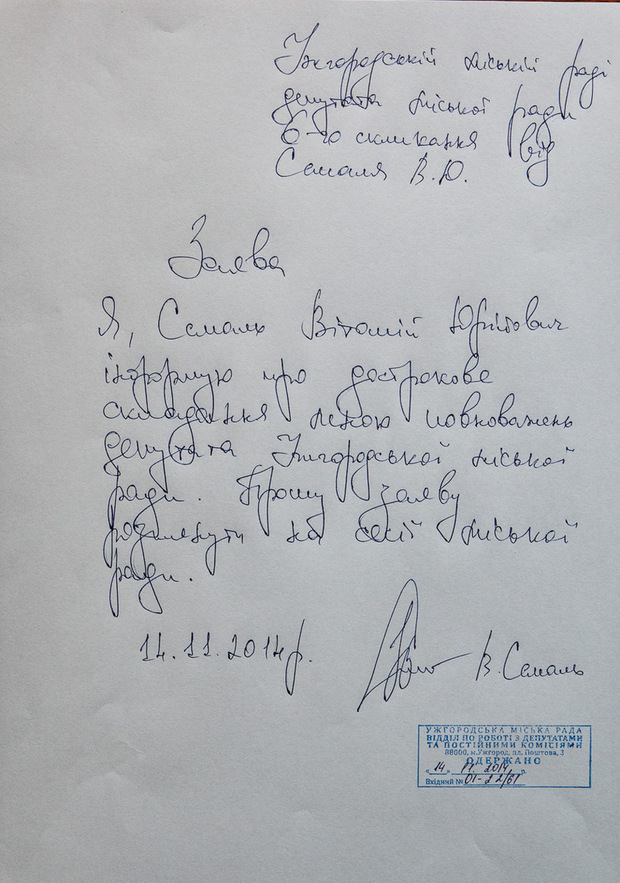 Ужгородській міській раді
депутата міської ради
6-го скликання від
Семаля В.Ю.
Заява
Я, Семаль Віталій Юрійович
інформую про дострокове
складання мною повноважень
депутата Ужгородської міської
ради. Прошу заяву
розглянути на сесії міської
ради.
14.11.2014р. В. Семаль
УЖГОРОДСЬКА МІСЬКА РАДА
ВІДДІЛ ПО РОБОТІ З ДЕПУТАТАМИ
ТА ПОСТІЙНИМИ КОМІСІЯМИ
88000, м.Ужгород, пл. Поштова, 3
ОДЕРЖАНО
„14" 11. 2014
Вхідний № 01-22/61